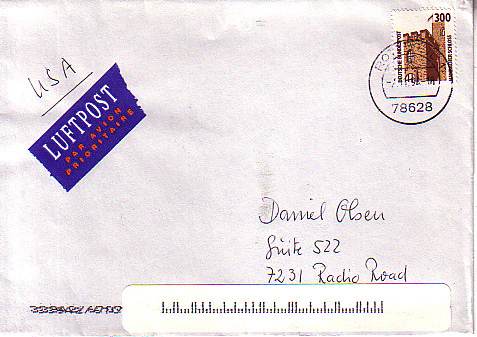 300
DEUTSCHE BUNDESPOST
78628
USA
LUFTPOST
PAR AVION
PRIORITAIRE
Daniel Olsen
Suite 522
7231 Radio Road